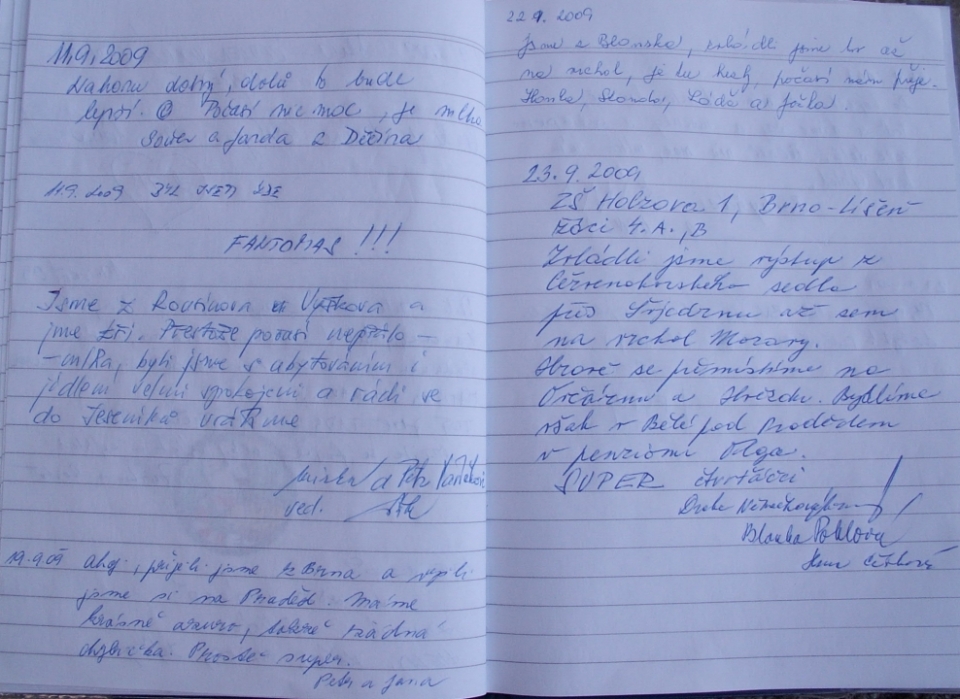 11.9.2009
Nahoru dobrý, dolů to bude
lepší. Počasí nic moc, je mlha
a Jarda z Děčína
11.9.2009 BYL JSEM ZDE
FANTOMAS !!!
Jsme z Rousínova a Vyškova a
jsme tři. Přestože počasí nepřálo –
– mlha, byli jsme s ubytováním i
jídlem velmi spokojeni a rádi se
do Jeseníků vrátíme
a Petr
ved.
19.9.09 Ahoj, přijeli jsme z Brna a
jsme si na Praděd. Máme
krásné azuro, takže žádná
Prostě super.
Petr a Jana
22.9.2009
Jsme z Blanska, zvládli jsme to až
na vrchol, je tu hezky, počasí nám přeje.
Honza, a
23.9.2009
ZŠ Holzova 1, Brno-Líšeň
žáci 4.A.,B
Zvládli jsme výstup z
Červenohorského sedla
přes Švýcárnu až sem
na vrchol Moravy.
Hravě se přemístíme na
Ovčárnu a Hvězdu. Bydlíme
však v Bělé pod Pradědem
v penzionu Olga.
SUPER čtvrťáci
Blanka